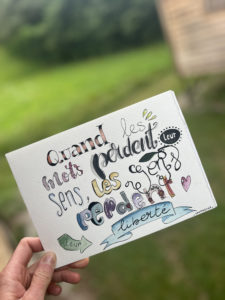 Quand les
mots perdent leur
sens les gens
perdent
leur liberté